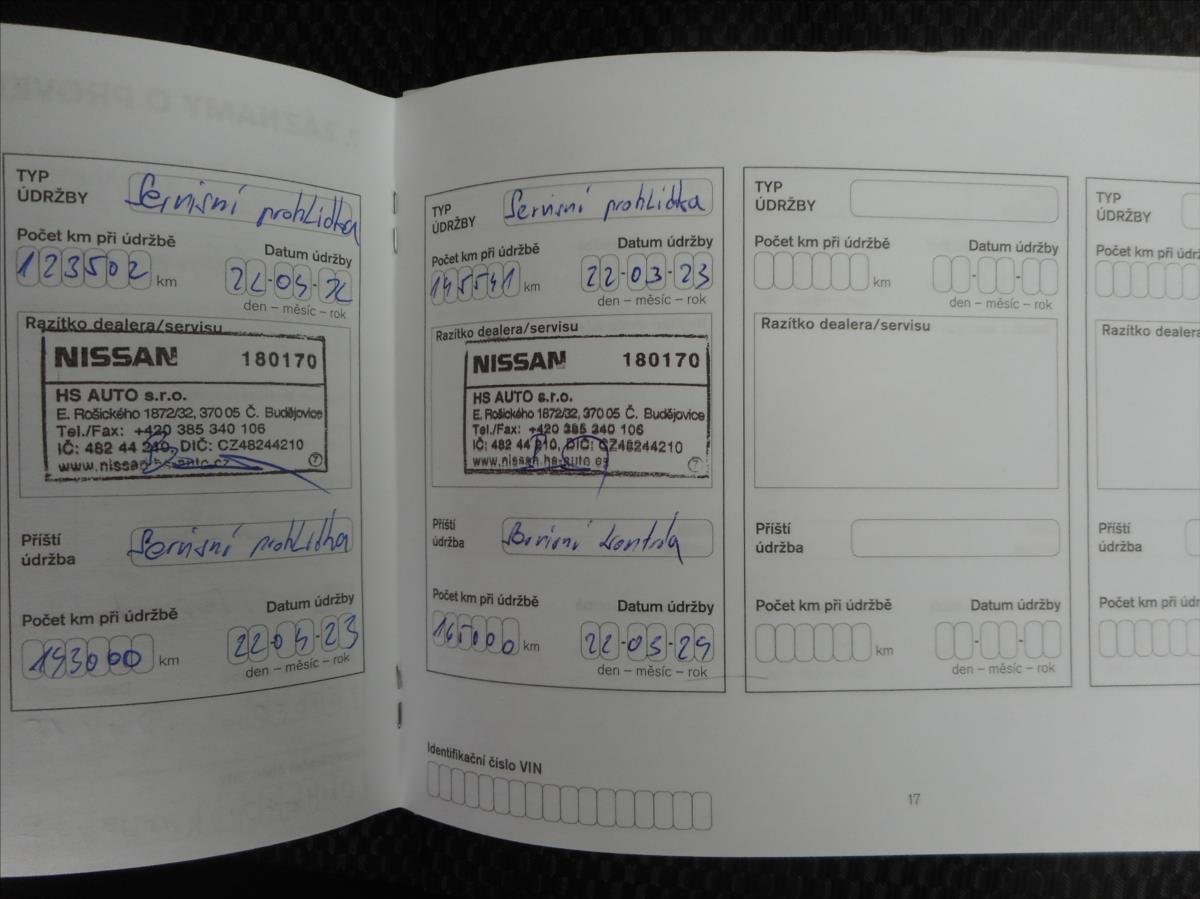 7. ZÁZNAMY O PROVE
TYP
ÚDRŽBY
Servisní prohlídka
Počet km při údržbě
Datum údržby
123502 km
den – měsíc – rok
Razítko dealera/servisu
NISSAN 180170
HS AUTO s.r.o.
E. Rošického 1872/32, 370 05 Č. Budějovice
Tel./Fax: +420 385 340 106
IČ: 482 44 210, DIČ: CZ48244210
www.nissan.hs-auto.cz
7
Příští
údržba
Servisní prohlídka
Počet km při údržbě
Datum údržby
143000 km
22-04-23
den – měsíc – rok
TYP
ÚDRŽBY
Servisní prohlídka
Počet km při údržbě
Datum údržby
145541 km
22-03-23
den – měsíc – rok
Razítko dealera/servisu
NISSAN 180170
HS AUTO s.r.o.
E. Rošického 1872/32, 370 05 Č. Budějovice
Tel./Fax: +420 385 340 106
IČ: 482 44 210, DIČ: CZ48244210
www.nissan.hs-auto.cz
7
Příští
údržba
Servisní kontrola
Počet km při údržbě
Datum údržby
165000 km
22-03-24
den – měsíc – rok
Identifikační číslo VIN
TYP
ÚDRŽBY
Počet km při údržbě
Datum údržby
km
den – měsíc – rok
Razítko dealera/servisu
Příští
údržba
Počet km při údržbě
Datum údržby
km
den – měsíc – rok
17
TYP
ÚDRŽBY
Počet km při údrž
Razítko dealera
Příští
údržba
Počet km při údrž